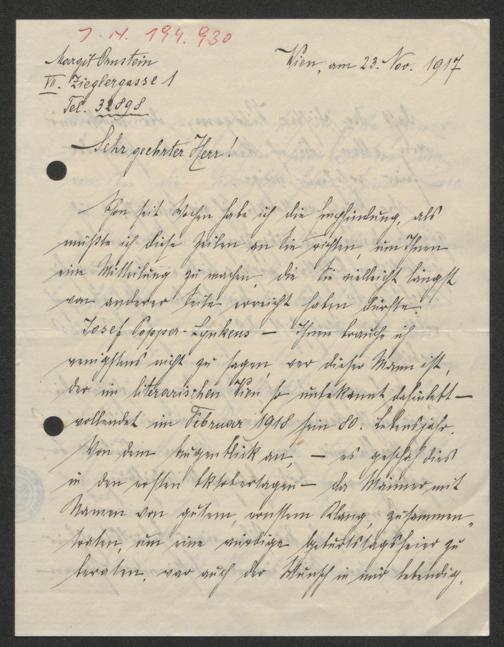 J. N. 194.930
Margit Ornstein
VII. Zieglergasse 1
Tel. 32898
Wien, am 23. Nov. 1917
Sehr geehrter Herr!
Schon seit Wochen habe ich die Empfindung, als
müßte ich diese Zeilen an Sie richten, um Ihnen
eine Mitteilung zu machen, die Sie vielleicht längst
von anderer Seite erreicht haben dürfte.
Josef Popper-Lynkeus — Ihnen brauche ich
wenigstens nicht zu sagen, wer dieser Mann ist,
der im literarischen Wien so unbekannt
vollendet im Februar 1918 sein 80. Lebensjahr.
Von dem Augenblick an, — es geschah dies
in den ersten Oktobertagen — da Männer mit
Namen von gutem, ernstem Klang, zusammen-
traten, um eine würdige Geburtstagsfeier zu
beraten, war auch der Wunsch in mir lebendig,